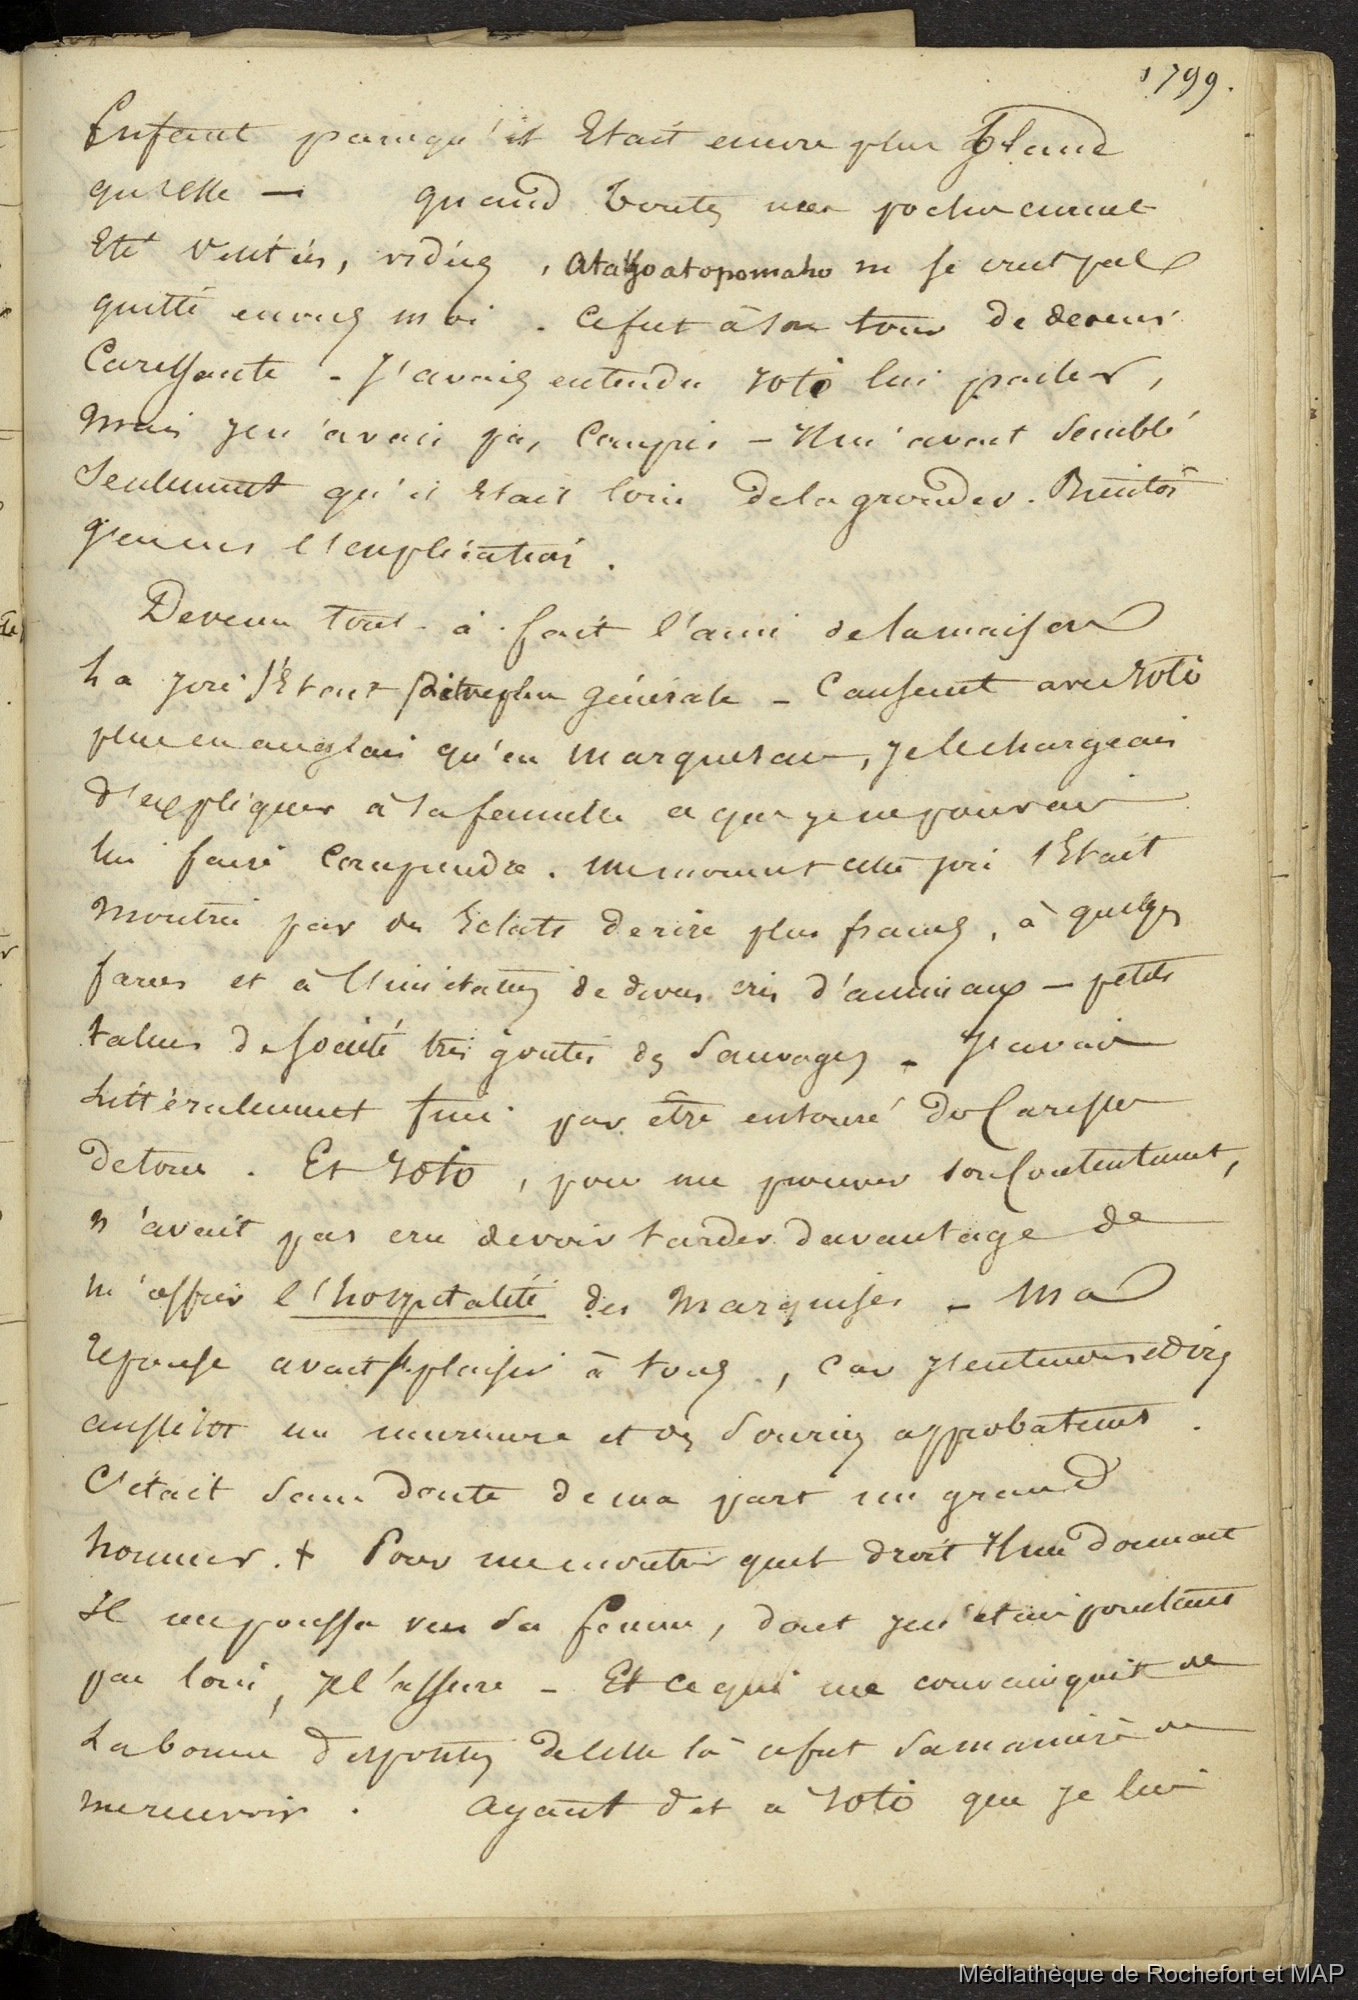 1799.
Enfant parcequ'il Etait encore plus blanc
qu'elle — quand toutes mes poches eurent
Eté visitées, vidées, Atahoatopomaho ne se crut pas
quitté envers moi. Ce fut à son tour de devenir
Caressante - J'avais entendu Toto lui parler,
Mais je n'avais pas Compris - Il m'avait Semblé
Seulement qu'il Etait loin de la gronder. Bientôt
j'en eus l'explication.
Devenu tout-à-fait l'ami de la maison
La joie s'Etait générale - Causant avec Toto
plus en anglais qu'en marquesan, je le chargeais
d'expliquer à sa femme ce que je ne pouvais
lui faire Comprendre. un moment cette joie s'Etait
Montrée par des Eclats de rire plus francs, à quelques
farces et à l'imitation de divers cris d'animaux — petits
talens de Société très goutés des Sauvages - J'avais
Littéralement fini par être entouré de Caresses
de tous. Et Toto, pour me prouver son Contentement,
n'avait pas cru devoir tarder davantage de
m'offrir l'hospitalité des Marquises - Ma
Réponse avait fait plaisir à tous, car j'entendis
aussitot un murmure et des Souris approbateurs.
C'était Sans Doute de ma part un grand
honneur. + Pour me montrer quel droit Il me Donnait
Il me poussa vers Sa femme, dont je n'étais pourtant
pas loin, je l'assure - Et ce qui me convainquit de
La bonne disposition de celle là ce fut Sa manière de
me recevoir. Ayant dit à Toto que je lui
Médiathèque de Rochefort et MAP